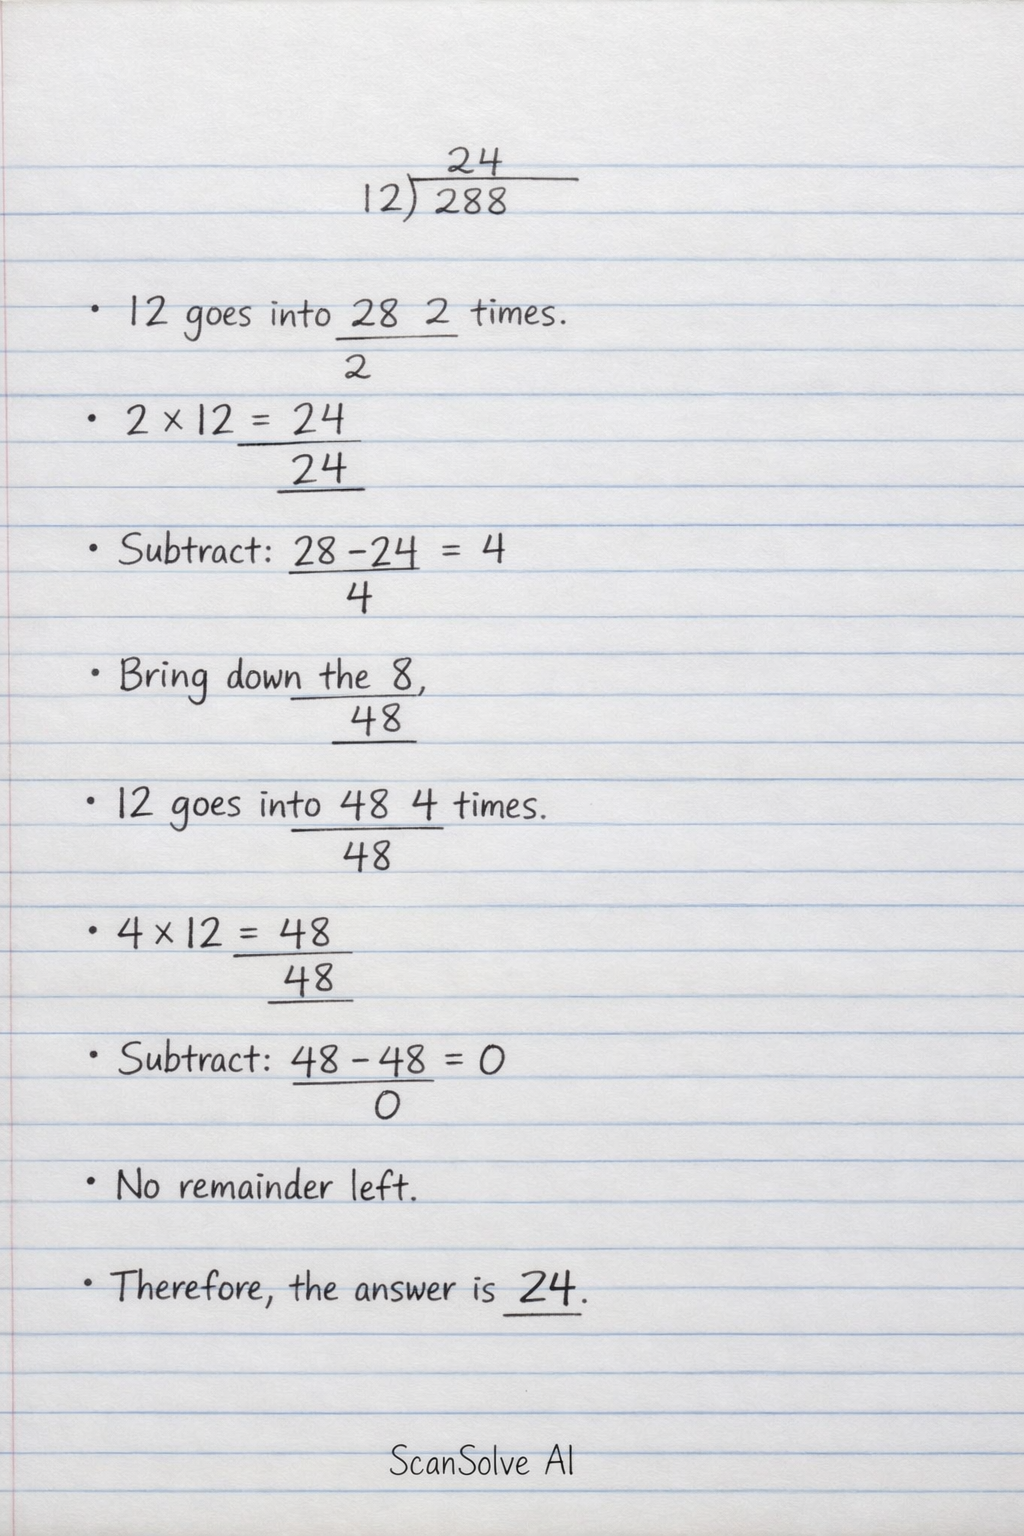 24
12) 288
• 12 goes into 28 2 times.
2
• 2 × 12 = 24
24
• Subtract: 28 - 24 = 4
4
• Bring down the 8,
48
• 12 goes into 48 4 times.
48
• 4 × 12 = 48
48
• Subtract: 48 - 48 = 0
0
• No remainder left.
• Therefore, the answer is 24.
ScanSolve AI